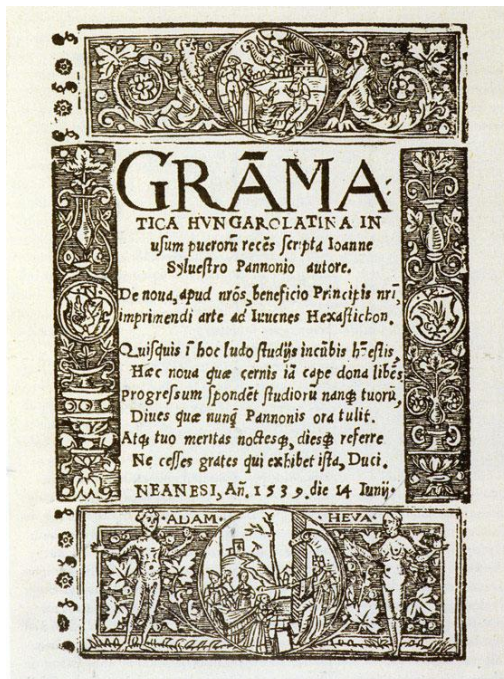 GRĀMA
TICA HVNGAROLATINA IN
usum puerorū recēs scripta Ioanne
Syluestro Pannonio autore.
De noua, apud nrōs, beneficio Principis nrī,
imprimendi arte ad Iuuenes Hexastichon.
Quisquis ī hoc ludo studijs incūbis hōestis,
Hæc noua quæ cernis iā cape dona libēs
progressum spondēt studiorū nanq; tuorū,
Diues quæ nunq̄ Pannonis ora tulit.
Atq; tuo meritas noctesq;, diesq; referre
Ne cesses grates qui exhibet ista, Duci.
NEANESI, Añ. 1539. die 14 Iunij.
ADAM · HEVA ·